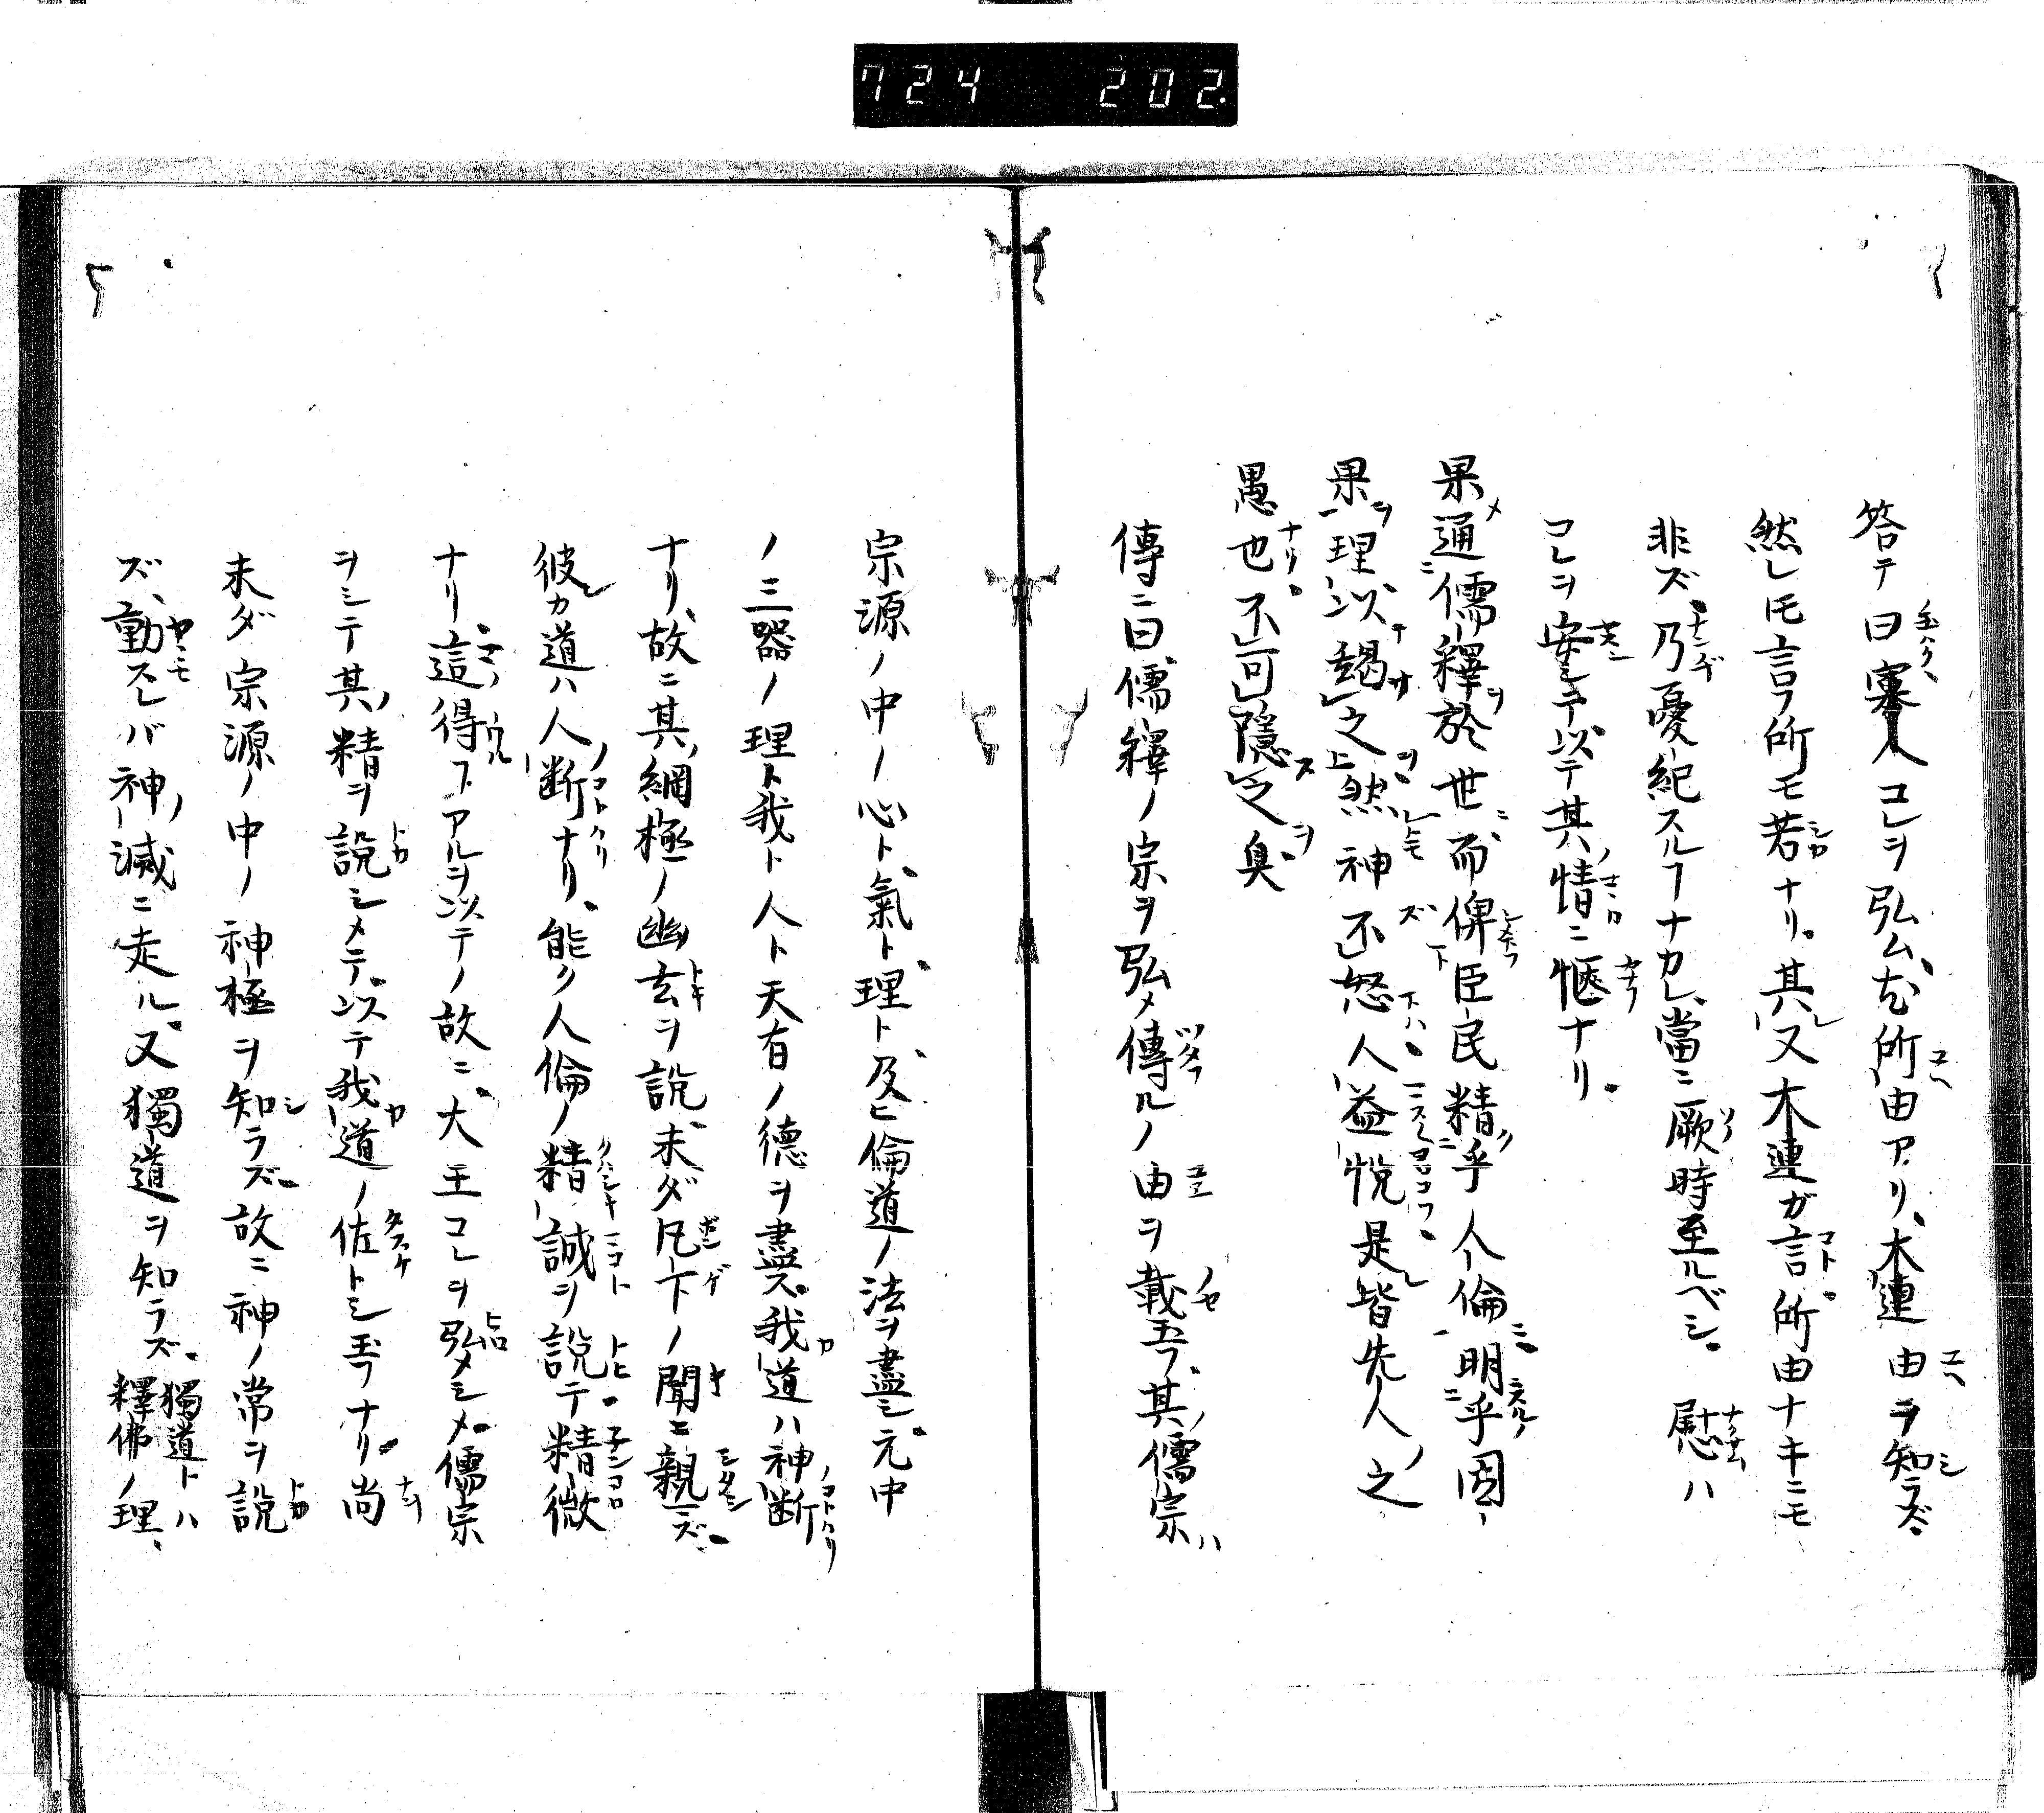 724 202
答テ曰寡人コレヲ弘ム、尤所由アリ、木連由ヲ知ラズ、
然レ𪜈言フ所モ若ナリ。其レ又木連ガ言所由ナキニモ
非ズ。乃憂紀スルヿナカレ、當ニ厥時至ルベシ。慰ハ
コレヲ安シテ以テ其情ニ愜ナリ。
果通儒釋於世而俾臣民精乎人倫明乎因
果理以竭之然神不怒人益悦是皆先人之
愚也不可隱之臭
傳ニ曰儒釋ノ宗ヲ弘メ傳ルノ由ヲ載玉フ、其儒宗ハ
宗源ノ中ノ心ト氣ト理ト及ヒ倫道ノ法ヲ盡シ元中
ノ三器ノ理ト我ト人ト天有ノ德ヲ盡ス。我道ハ神断
ナリ、故ニ其綱極ノ幽玄ヲ說、未ダ凡下ノ聞ニ親ズ。
彼カ道ハ人断ナリ。能ク人倫ノ精誠ヲ說テ精微
ナリ、這得ヿアルヲ以テノ故ニ、大王コレヲ弘メシメ儒宗
ヲシテ其精ヲ說シメテ、以テ我道ノ佐トシ玉フナリ。尚
未ダ宗源ノ中ノ神極ヲ知ラズ故ニ神ノ常ヲ說
ズ、動スレバ神滅ニ走ル。又獨道ヲ知ラズ。獨道トハ
釋佛ノ理、